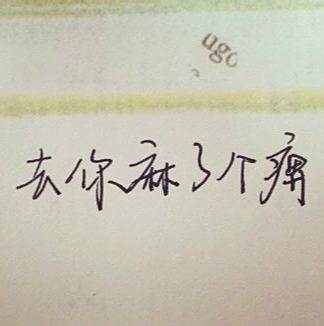 ugo
去你麻了个痹